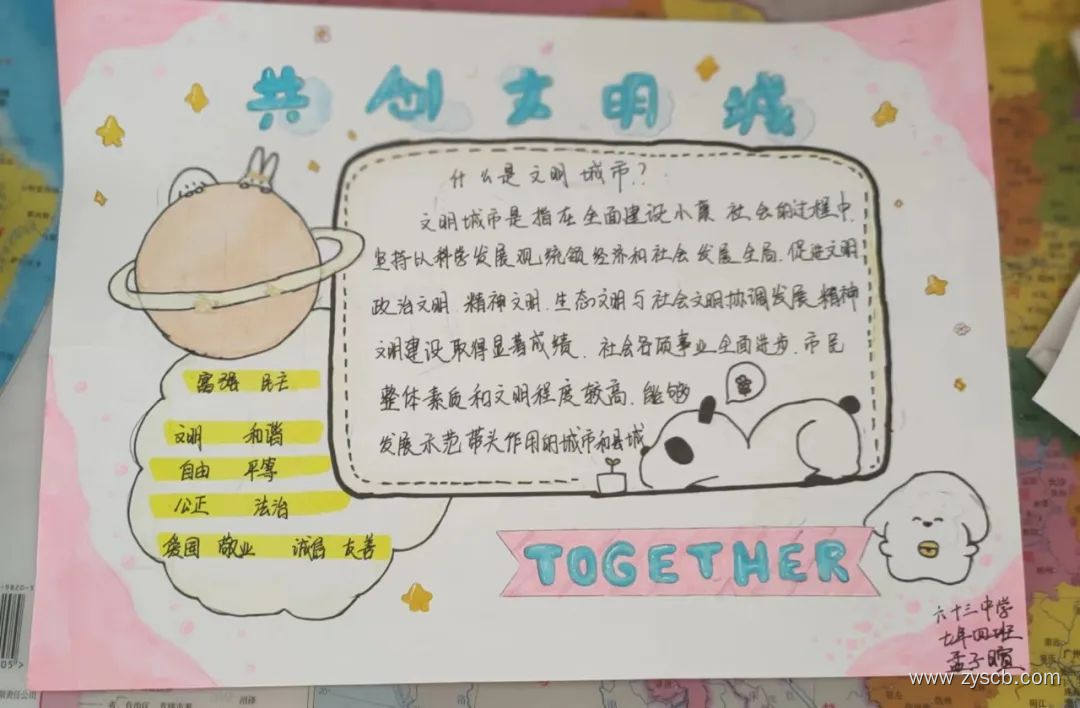 共创文明城
什么是文明城市？
文明城市是指在全面建设小康社会的过程中,
坚持以科学发展观,统领经济和社会发展全局.促进文明
政治文明.精神文明.生态文明与社会文明协调发展.精神
文明建设取得显著成绩.社会各项事业全面进步.市民
整体素质和文明程度较高.能够
发展示范带头作用的城市和县城
富强 民主
文明 和谐
自由 平等
公正 法治
爱国 敬业 诚信 友善
TOGETHER
六十三中学
七年四班
孟子暄
www.zyscb.com